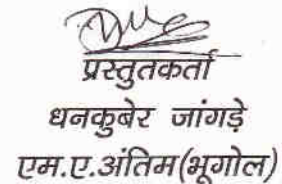 प्रस्तुतकर्ता
धनकुबेर जांगड़े
एम.ए.अंतिम(भूगोल)